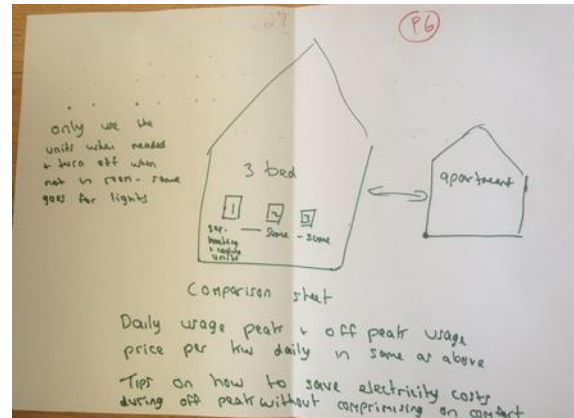 P6
only use the
units when needed
+ turn off when
not in room - same
goes for lights
3 bed
1 2 3
sep. — same - same
heating
+ cooling
units
apartment
Comparison sheet
Daily usage peak + off peak usage
price per kw daily in same as above
Tips on how to save electricity costs
during off peak without comprimising on comfort